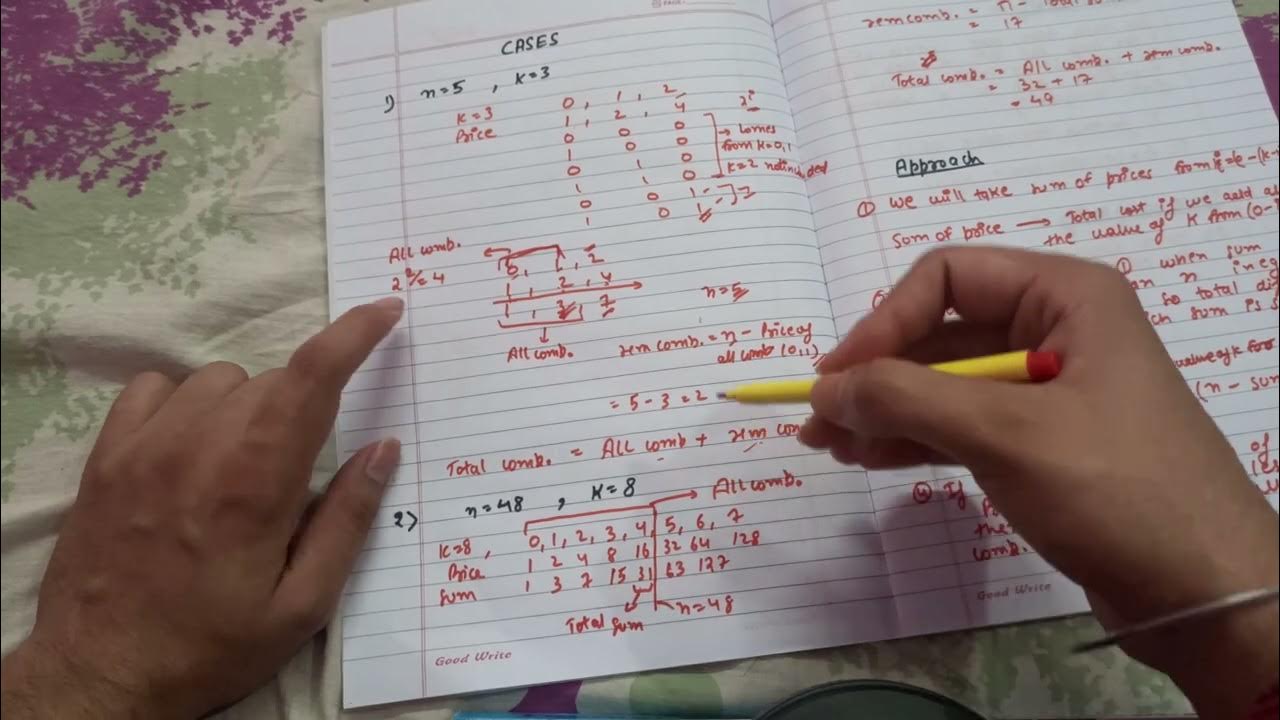 CASES
1) n=5 , K=3
K=3 0, 1, 2
Price 1, 2, 4
0 0 0
1 0 0
0 1 0
1 1 0
0 0 1
1 0 1
2^i
→ Comes
from K=0,1
K=2 not included
All comb.
2^2 = 4
0, 1, 2
1, 2, 4
1, 3, 7
All comb.
n=5
rem comb. = n - Price of
all comb (0,1)
= 5 - 3 = 2
Total comb. = All comb + rem
2) n=48 , K=8
→ All comb.
K=8, 0, 1, 2, 3, 4, 5, 6, 7
Price 1 2 4 8 16 32 64 128
Sum 1 3 7 15 31 63 127
Total Sum
n=48
Good Write
rem comb. = n -
= 17
Total comb. = All comb. + rem comb.
= 32 + 17
= 49
Approach
① We will take sum of prices from
Sum of price → Total cost if we add
the value of K from (0-
when sum
so total
sum is
value of K for
(n - sum
of
④ If
the
comb.
Good Write